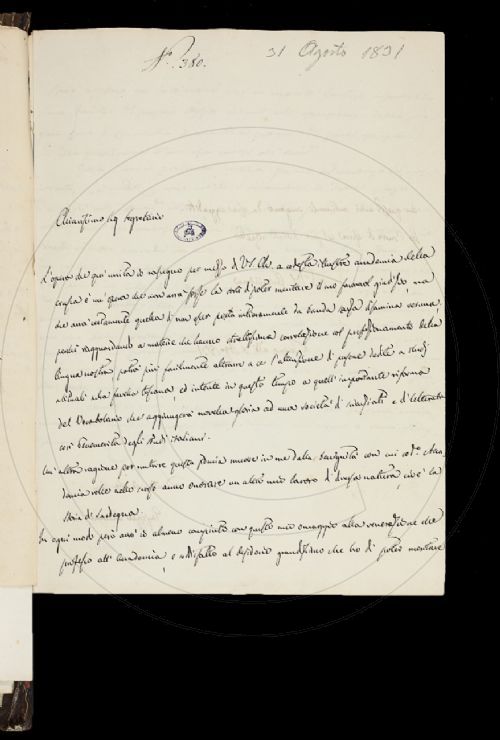 N.° 380.
31 Agosto 1831
Chiarissimo Sig Segretario
L'opera che qui unita le rassegno per mezzo di V.S. Ch. a codesta illustre accademia della
crusca è un' opera che non avrà forse la sorte di poter meritare il suo favorevol giudizio, ma
che avrà certamente quella di non esser posta interamente da banda senza disamina veruna,
perchè ragguardando a materie che hanno strettissima correlazione col perfezionamento della
lingua nostra, potrà più facilmente attrarre a se l'attenzione di persone dedite a studj
attinenti alla favella toscana, ed intente in questo tempo a quell' importante riforma
del Vocabolario che aggiungerà novella gloria ad una società di scienziati e di letterati
così benemerita degli studi italiani.
Un' altra ragione per nutrire questa fiducia nasce in me dalla benignità con cui cod.ª Acca
demia volle nello scorso anno onorare un altro mio lavoro di diversa natura, cioè la
Storia di Sardegna
In ogni modo però avrò io almeno compiuto con questo mio omaggio alla venerazione che
professo all' Accademia, e soddisfatto al desiderio grandissimo che ho di poter meritare